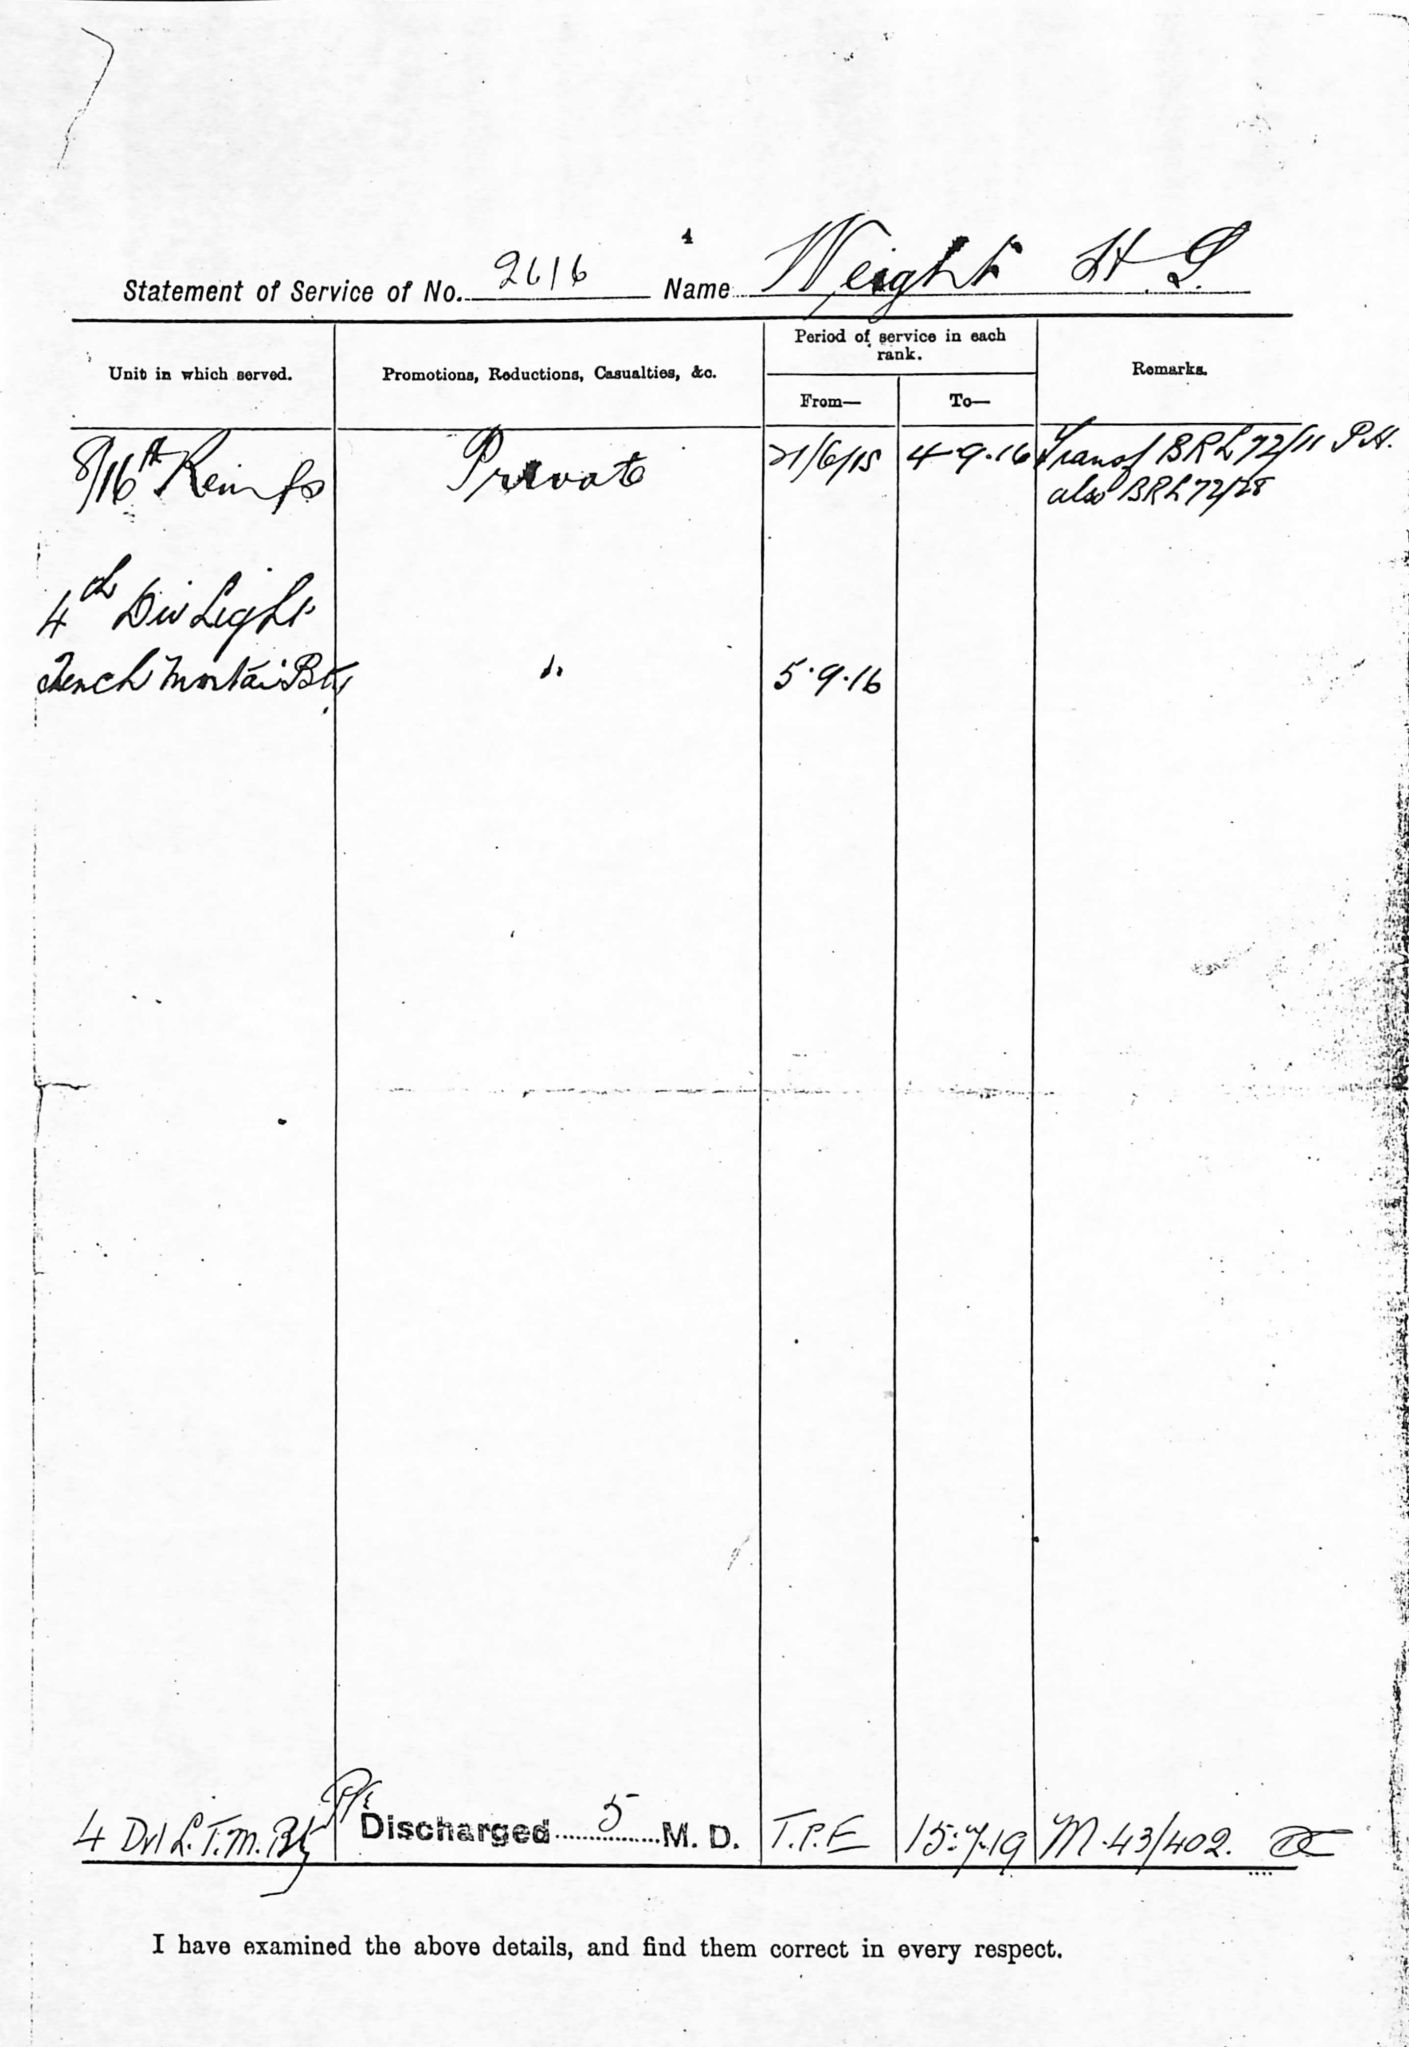 4
Statement of Service of No. 2616 Name Weight H. G.
Unit in which served.
Promotions, Reductions, Casualties, &c.
Period of service in each
rank.
From—
To—
Remarks.
8/16th Reinfs
Private
21/6/15
4-9-16
Transf BRL 72/11 P.H.
also BRL 72/28
4th Div Light
Trench Mortar Bty
"
5.9.16
4 Dvl L.T.M. Bty
Pte
Discharged 5 M. D.
T.P.E
15.7.19
M.43/402.
I have examined the above details, and find them correct in every respect.